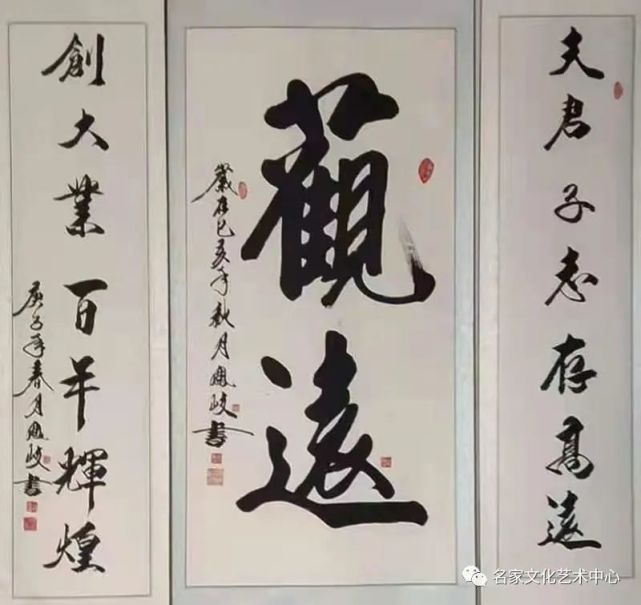 夫君子志存高遠
觀遠
歲在己亥年秋月鳳岐書
創大業百年輝煌
庚子年春月鳳岐書
名家文化艺术中心